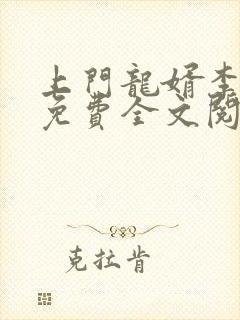 上門龍婿李
免費全文閱
克拉肯